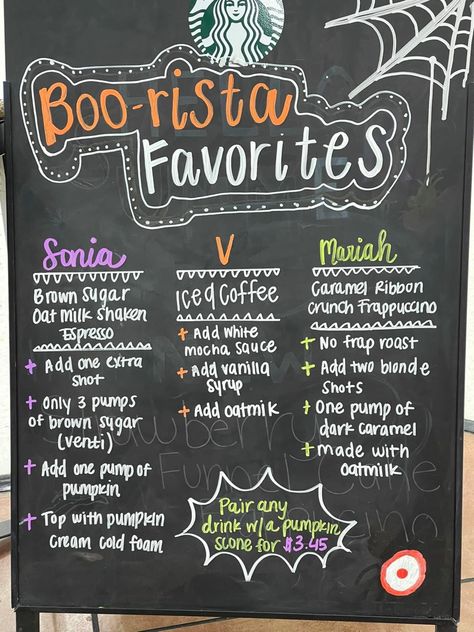 Boo-rista
Favorites
Sonia
Brown Sugar
Oat Milk Shaken
Espresso
+ Add one extra
shot
+ Only 3 pumps
of brown sugar
(venti)
+ Add one pump of
pumpkin
+ Top with pumpkin
cream cold foam
V
Iced Coffee
+ Add white
mocha sauce
+ Add vanilla
syrup
+ Add oatmilk
Mariah
Caramel Ribbon
Crunch Frappuccino
+ No frap roast
+ Add two blonde
shots
+ One pump of
dark caramel
+ made with
oatmilk
Pair any
drink w/a pumpkin
scone for $3.45
Funnel Cake